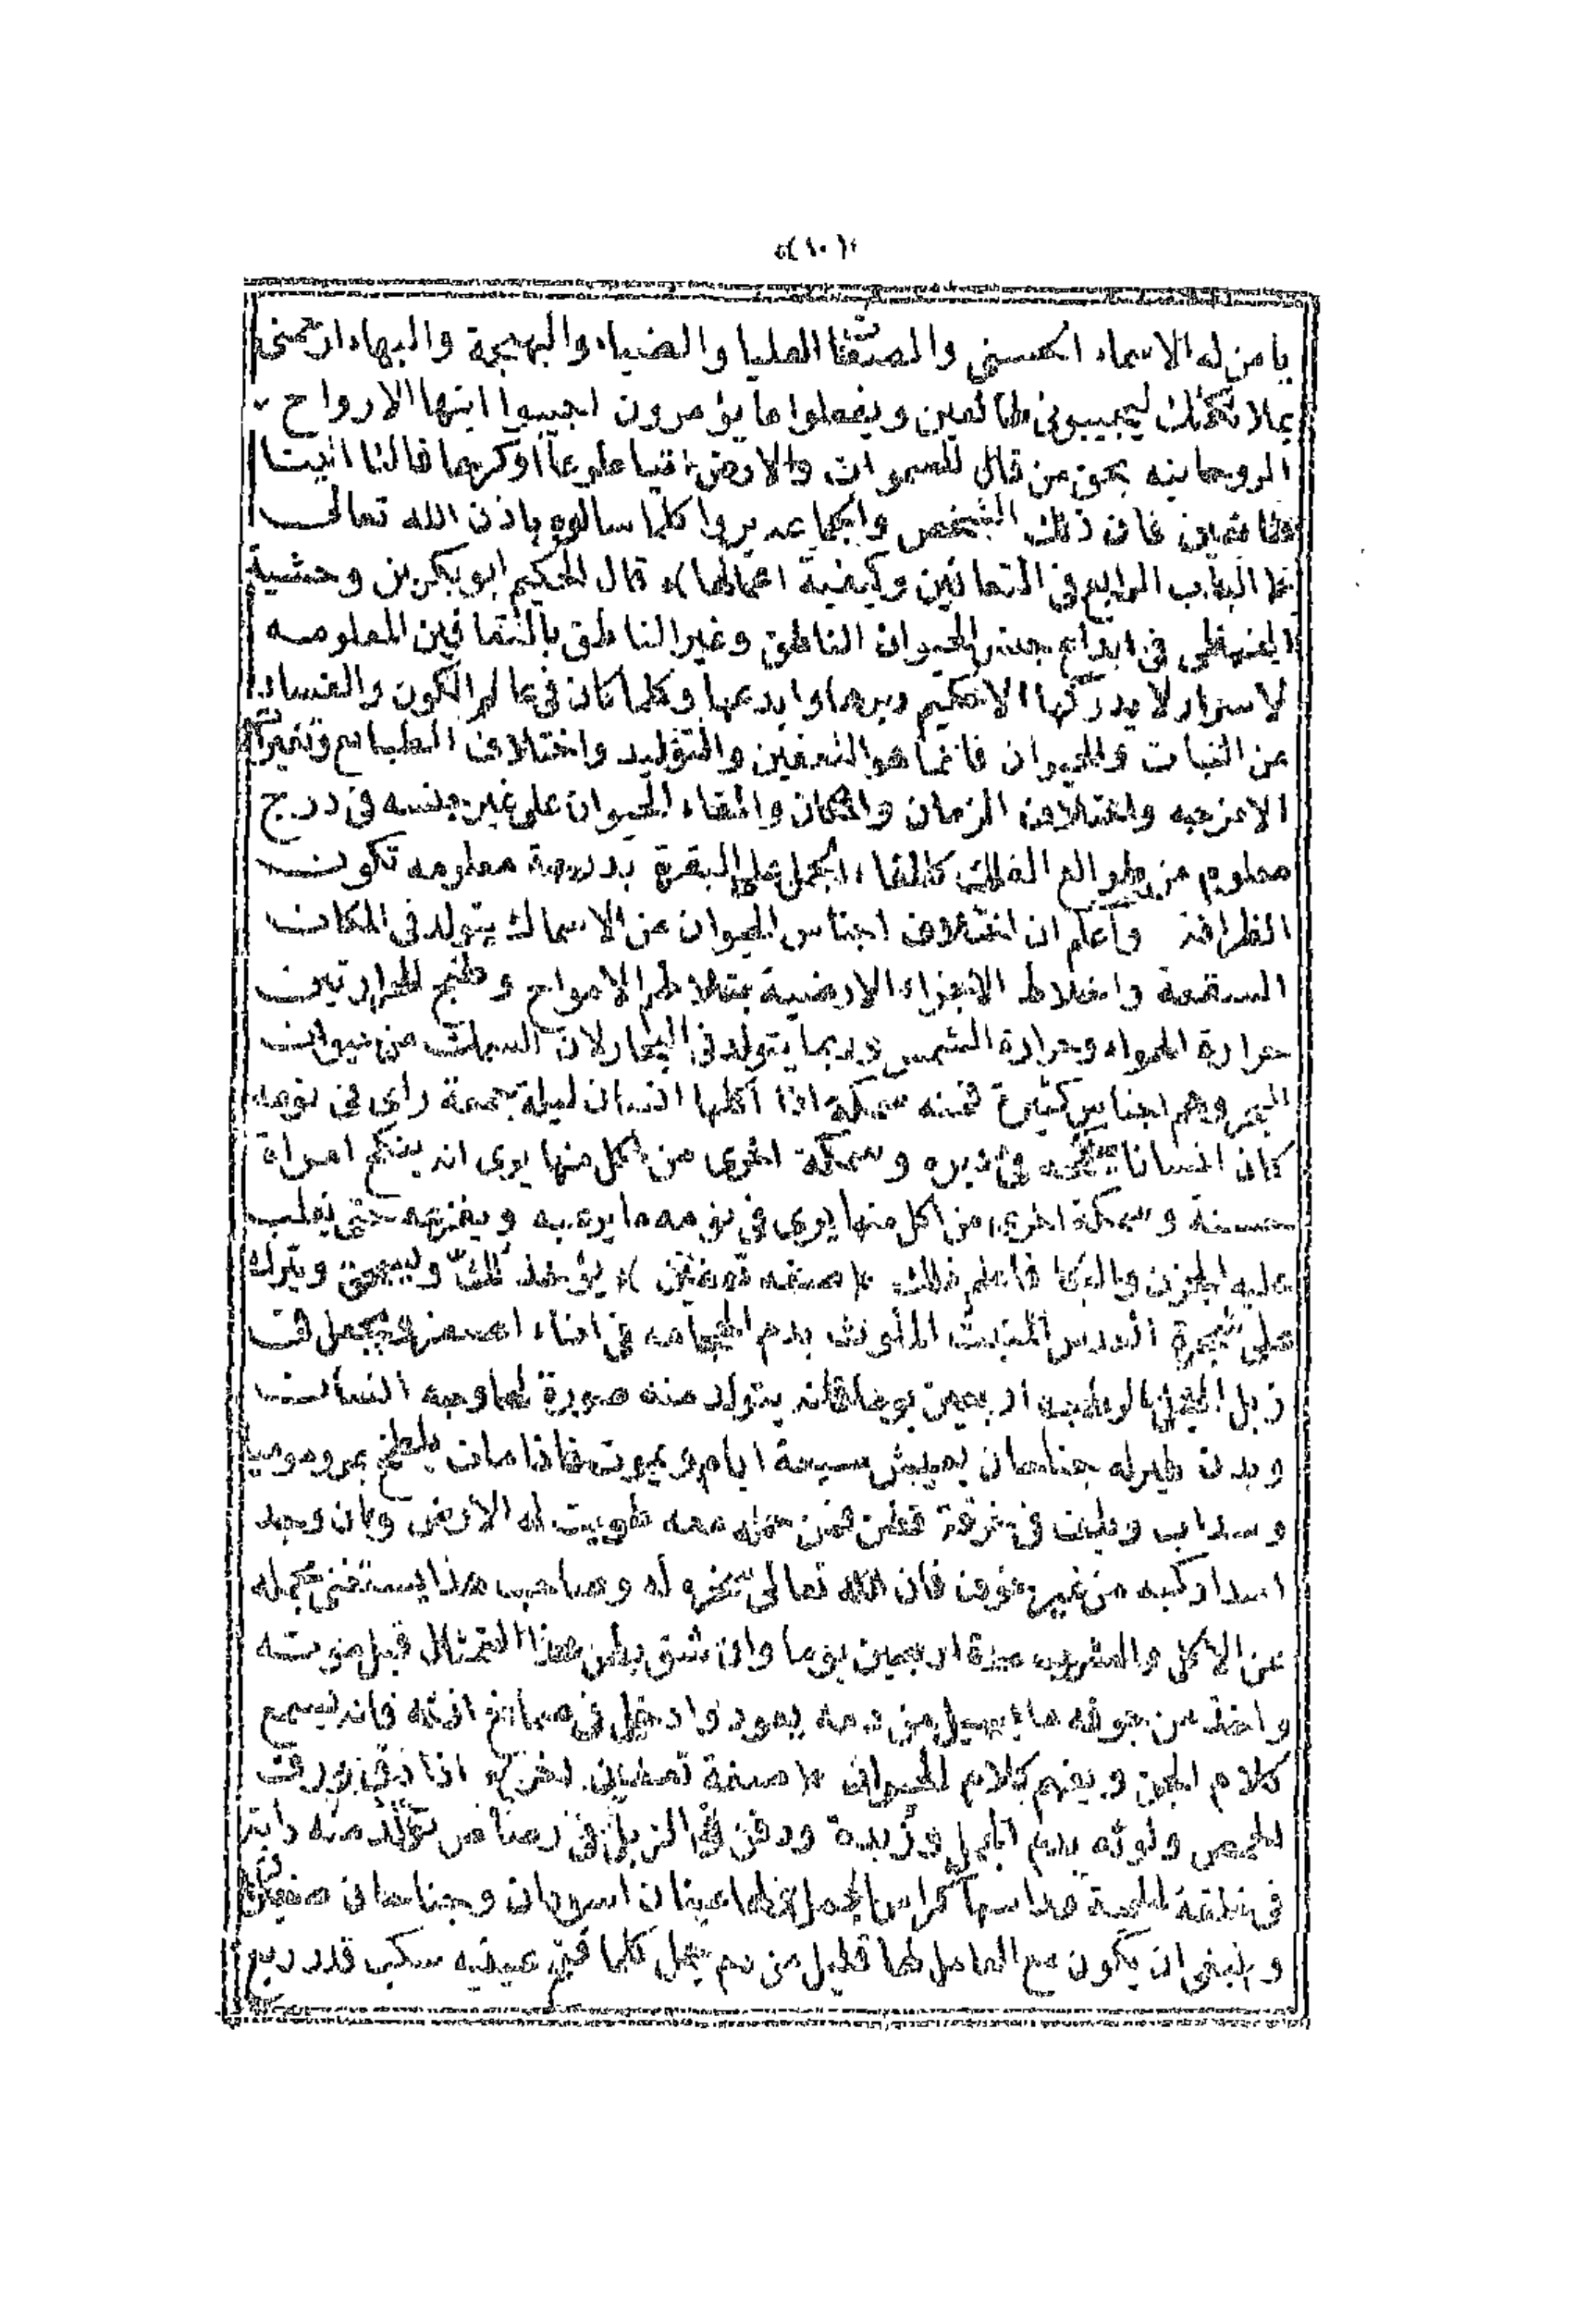 ﴿١٠﴾
يا من له الاسماء الحسنى والصفتا العليا والضياء والبهيجة والبهاء ارحمنى
بملائكتك ليجيبونى طائعين ويفعلوا ما يؤمرون اجيبوا ايتها الارواح
الروحانيه بحق من قال للسموات والارض ائتيا طوعاً أوكرها قالتا اتينا
طائعين فان ذلك الشخص والجماعه يروا كلما سالوه باذن الله تعالى
﴿الباب الرابع فى التعافين وكيفية اعمالها﴾ قال الحكيم ابو بكر بن وحشية
فى ابداع جنس الحيوان الناطق وغير الناطق بالتعافين المعلومه
لاسرار لا يدركها الا حكيم دبرها وابدعها وكلما كان فى عالم الكون والفساد
من النبات والحيوان فانما هو التعفين والتوليد واختلاف الطبايع وتغير
الامزجه واختلاف الزمان والمكان والقاء الحيوان على غير جنسه فى درج
معلوم من طوالع الفلك كالقاء الجمل على البقرة بدرجة معلومه تكون
الظرافة وأعلم ان اختلاف اجناس الحيوان من الاسماك يتولد فى المكان
واختلاط الاجزاء الارضية بتلاطم الامواج وطبخ الحرارتين
حرارة الهواء وحرارة الشمس وربما يتولد فى البحار لان السمك من حيوان
البحر وهم اجناس كثيرة فمنه سمكة اذا اكلها انسان ليلة جمعة راى فى نومه
كان انسانا ينكحه فى دبره وسمكة اخرى من اكل منها يرى انه ينكح امراة
حسنة وسمكة اخرى من اكل منها يرى فى نومه ما يرعبه ويفزعه حتى يغلب
عليه الحزن والبكا فاعلم ذلك ﴿صفه تعفين﴾ يؤخذ كلك ويسحق ويترك
على شجرة المنبت الملوث بدم الحجامه فى اناء ويجعل فى
زبل الخيل الرطبه اربعين يوما فانه يتولد منه صورة لها وجه انسان
وبدن طير له جناحان يعيش سبعة ايام ويموت فاذا مات يلطخ بمر
وسداب وطيب فى خرقة قطن فمن حمله معه طويت له الارض وان وجد
اسدا ركبه من غير خوف فان الله تعالى سخره له وصاحب هذا يستغنى بحمله
عن الاكل والشرب مدة اربعين يوما وان شق بطن هذا التمثال قبل موته
واخذ من جوفه ما يسيل من دمه بعود وادخل فى صماخ اذنه فانه يسمع
كلام الجن ويفهم كلام الحيوان ﴿صفة تعفين اخر﴾ اذا دق ورق
الحمص ولوثه بدم الجمل وزبده ودفن فى الزبل فى رصاص تولد منه دابة
فى خلقة راسها كراس الجمل لها عينان اسودان وجناحان
وينبغى ان يكون مع العامل لها قليل من دم جمل كلما فتح عينيه سكب قدر ربع